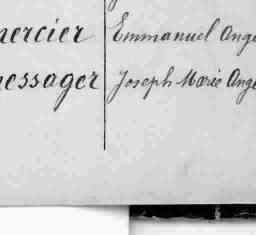 mercier Emmanuel Ange
messager Joseph Marie Ange